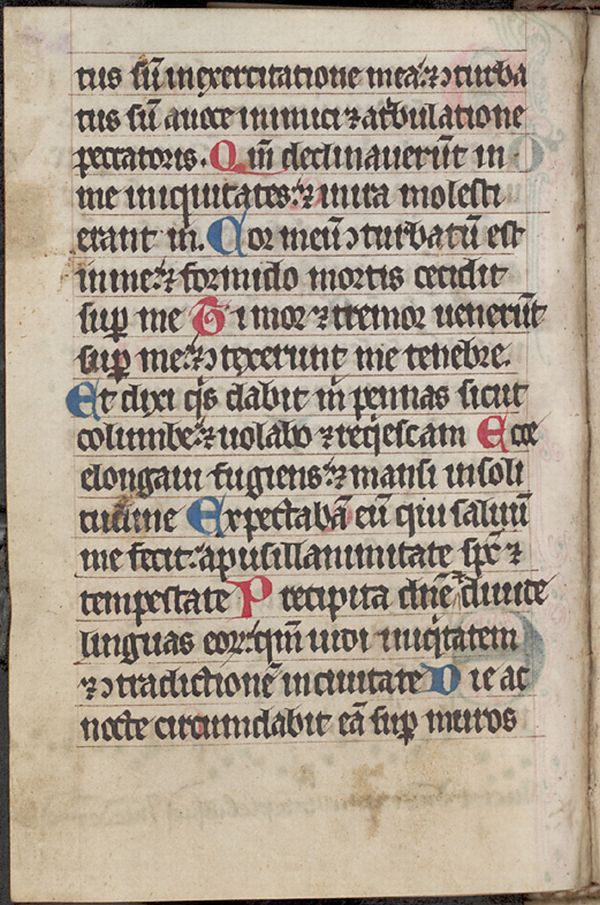 tus sū in exercitatione mea: ⁊ ꝯturba
tus sū a uoce inimici ⁊ a tͥbulatione
peccatoris. Qm̄ declinauerūt in
me iniquitates: ⁊ in ira molesti
erant m̄. Cor meū ꝯturbatū est
in me: ⁊ formido mortis cecidit
suꝑ me Timor ⁊ tremor uenerūt
suꝑ me: ⁊ ꝯtexerunt me tenebre.
Et dixi qͥs dabit m̄ pennas sicut
columbe: ⁊ uolabo ⁊ reqͥescam Ecce
elongaui fugiens: ⁊ mansi in soli
tudine Expectabā eū qui saluū
me fecit: a pusillanimitate spc̄ ⁊
tempestate Precipita dn̄e ⁊ diuide
linguas eoꝝ: qm̄ uidi iniqͥtatem
⁊ ꝯtradictionē in ciuitate Die ac
nocte circumdabit eā suꝑ muros